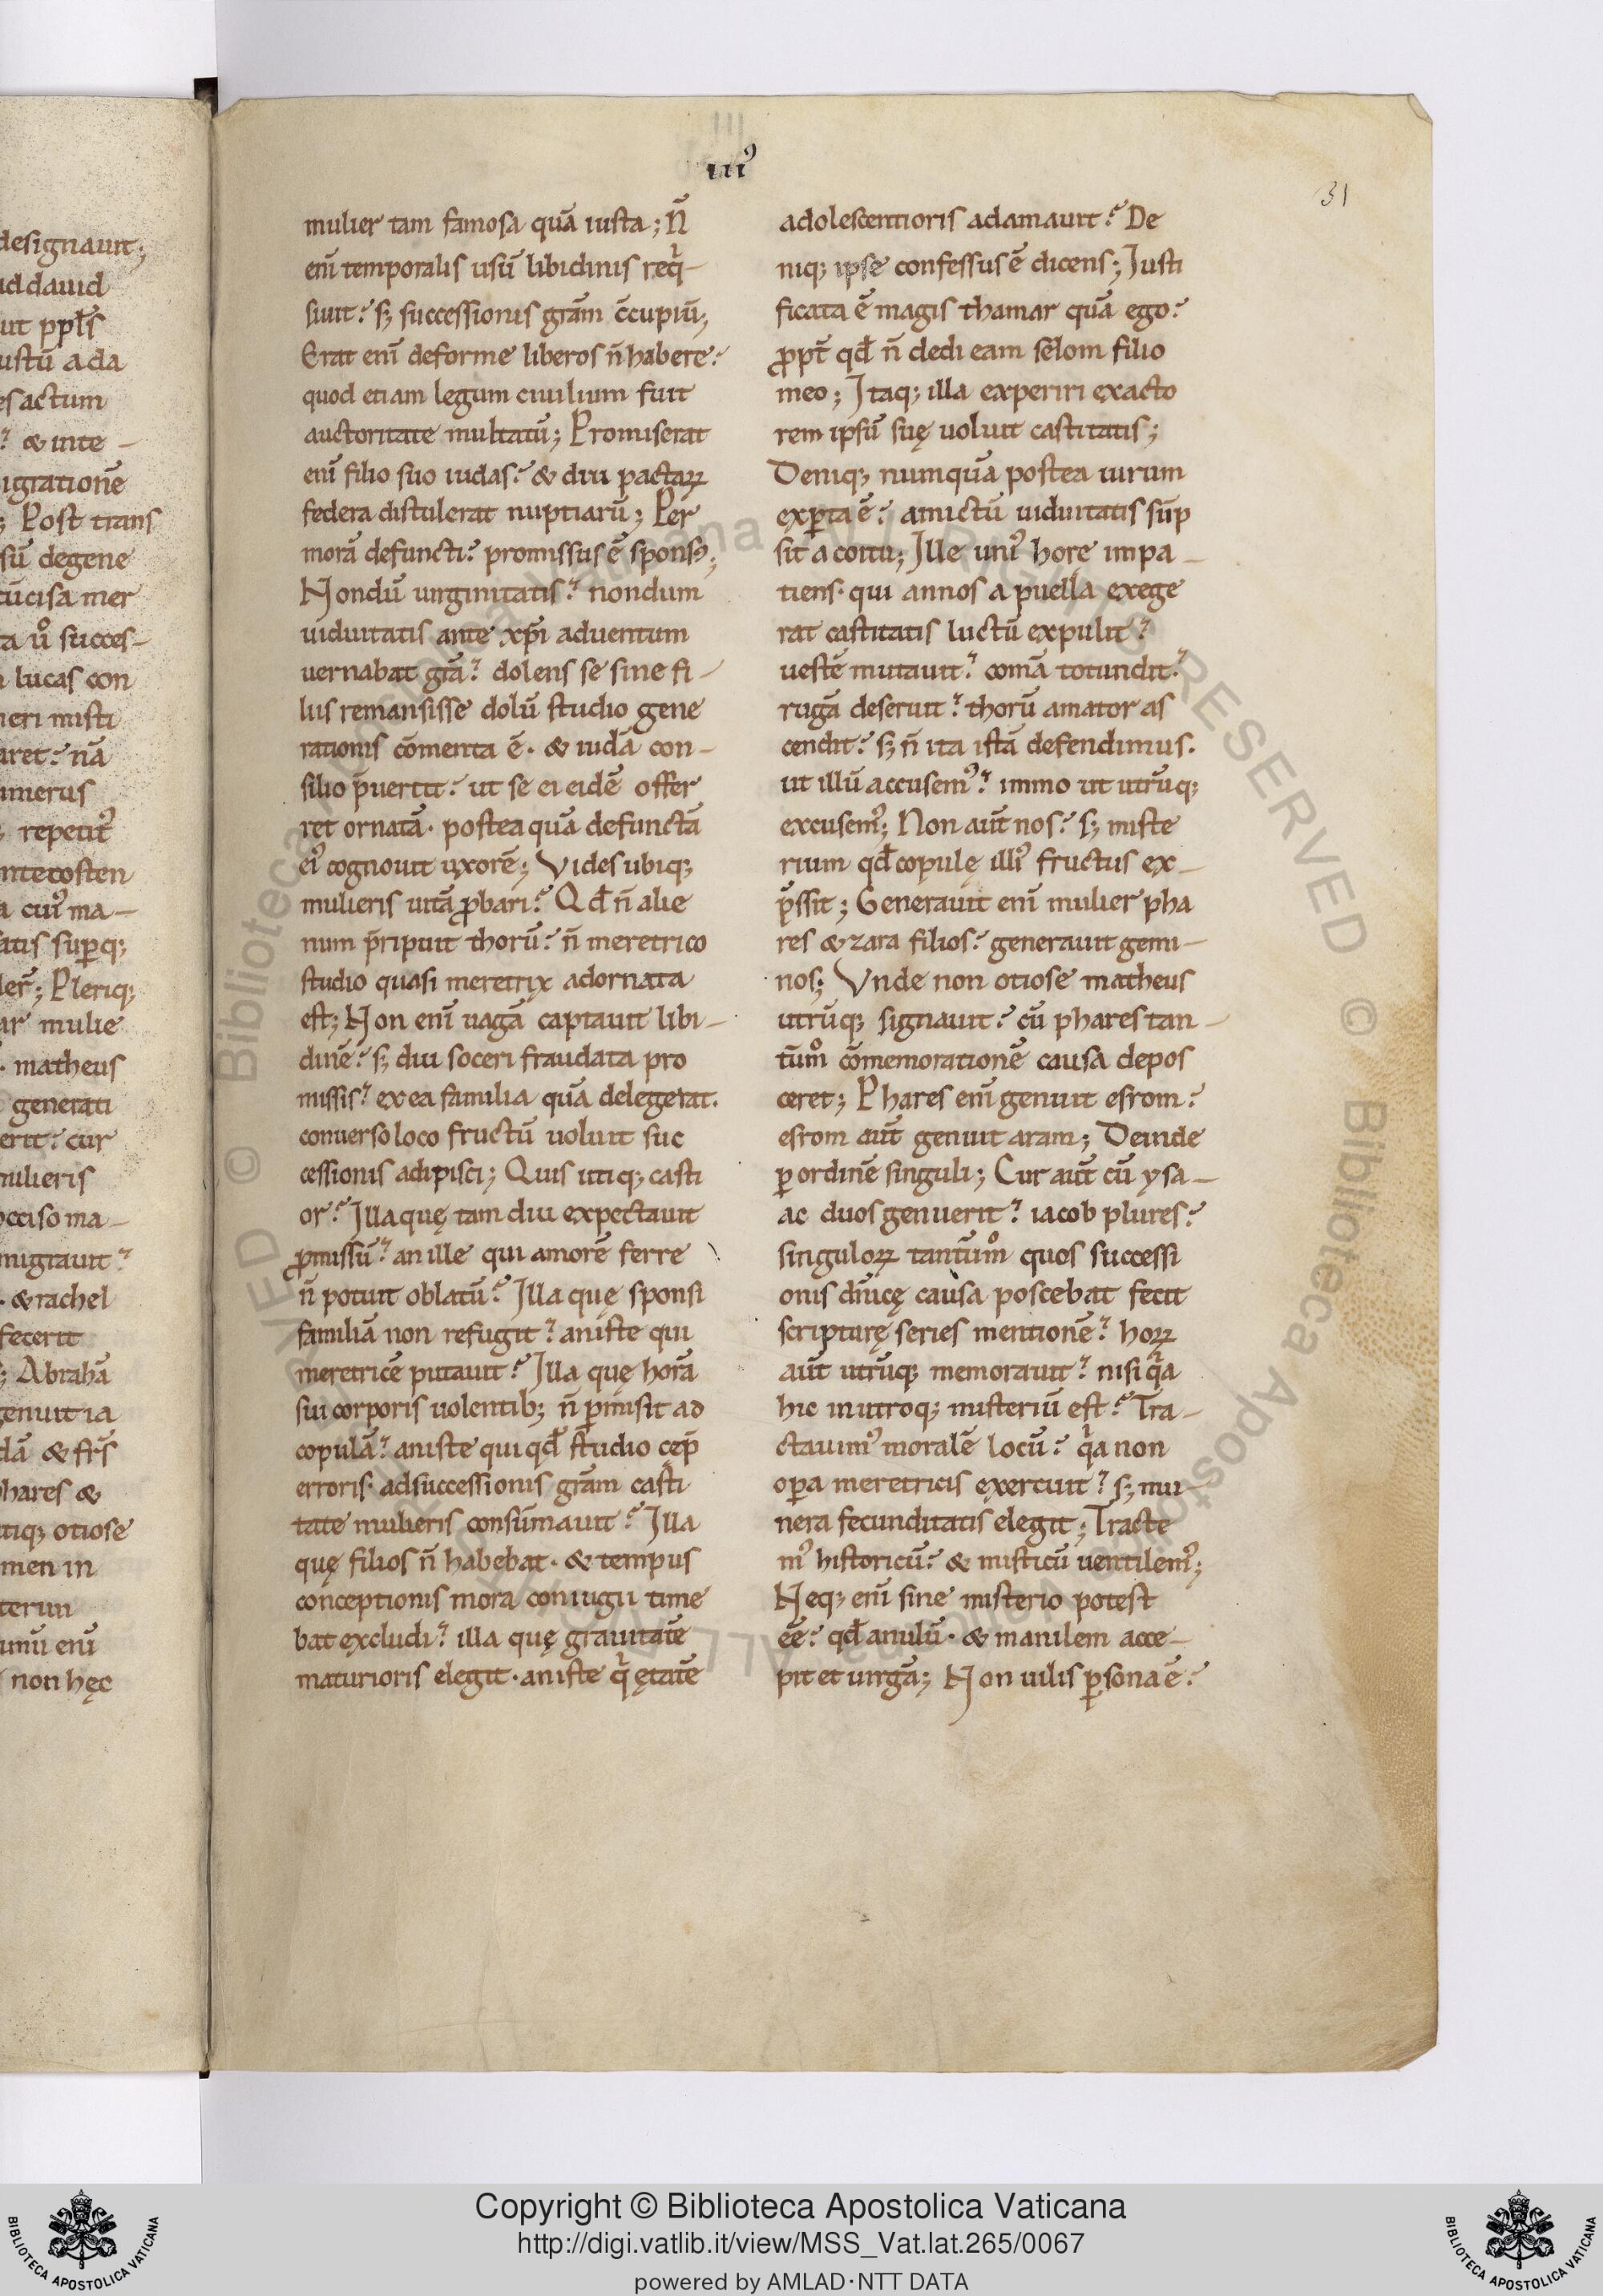 designauit;
ad dauid
ut ppl̄s
iustū ada
es actum
? & inte –
igrationē
; Post trans
sū degene
cūcisa mer
ta ů succes–
n lucas con
neri misti
aret? nā
umerus
; repetit᷒
ntecosten
a cui᷒ ma –
atis sup̱q;
ler̄; Pleriq;
ar mulie
· matheus
generati
erit? cur
mulieris
occiso ma –
migrauit?
· & rachel
fecerit
; Abrahā
genuit ia
dā & fr̄s
hares &
tiq; otiose
men in
terim
imū enī
non hęc
iii᷒
31
mulier tam famosa quā iusta; N̄
enī temporalis usū libidinis reqͥ–
siuit? s; successionis grām c̄cupiuī;
Erat enī deforme liberos n̄ habere?
quod etiam legum ciuilium fuit
auctoritate multatū; Promiserat
enī filio suo iudas? & diu pactaꝝ
federa distulerat nuptiarū; Per
morā defuncti? promissus ē spons᷒;
Nondū uirginitatis? nondum
uiduitatis ante xp̄i aduentum
uernabat grā? dolens se sine fi –
liis remansisse dolū studio gene
rationis cōmenta ē · & iudā con –
silio p̄uertit? ut se ei eidē offer
ret ornatā · postea quā defunctā
ei᷒ cognouit uxorē; Vides ubiq;
mulieris uitā ꝓbari? Qd̄ n̄ alie
num p̄ripuit thorū? n̄ meretrico
studio quasi meretrix adornata
est; Non enī uagā captauit libi –
dinē? s; diu soceri fraudata pro
missis? ex ea familia quā delegerat.
conuerso loco fructū uoluit suc
cessionis adipisci; Quis itiq; casti
or? Illa quę tam diu expectauit
ꝓmissū? an ille qui amorē ferre
n̄ potuit oblatū? Illa quę sponsi
familiā non refugit? an iste qui
meretricē putauit? Illa quę horā
sui corporis uolentib; n̄ ꝑmisit ad
copulā? an iste qui qd̄ studio cęp̄
erroris · ad successionis grām casti
tate mulieris consūmauit? Illa
quę filios n̄ habebat · & tempus
conceptionis mora coniugii time
bat excludi? illa quę grauitatē
maturioris elegit · an iste qͥ ętatē
adolescentioris adamauit? De
niq; ipse confessus ē dicens; Iusti
ficata ē magis thamar quā ego?
ꝓpt̄ qd̄ n̄ dedi eam selom filio
meo; Itaq; illa experiri exacto
rem ipsū suę uoluit castitatis;
Deniq; numquā postea uirum
exꝑta ē? amictū uiduitatis sūp
sit a coitu; Ille uni᷒ hore impa –
tiens · qui annos a puella exege
rat castitatis luctū expulit?
uestē mutauit? comā totundit?
rugā deseruit? thorū amator as
cendit? s; n̄ ita istā defendimus.
ut illū accusem᷒? immo ut utrūq;
excusem᷒; Non aut̄ nos? s; miste
rium qd̄ copulę illi᷒ fructus ex –
p̄ssit; Generauit enī mulier pha
res & zara filios? generauit gemi –
nos; Vnde non otiose matheus
utrūq; signauit? cū phares tan –
tūmͦ cōmemorationē causa depos
ceret; Phares enī genuit esrom?
esrom aut̄ genuit aram; Deinde
ꝑ ordinē singuli; Cur aut̄ cū ysa –
ac duos genuerit? iacob plures?
singuloꝝ tantūmͦ quos successi
onis dn̄icę causa poscebat fecit
scripturę series mentionē? hoꝝ
aut̄ utrūq; memorauit? nisi qͥa
hic in utroq; misteriū est? Tra –
ctauim᷒ moralē locū? qͥa non
oꝑa meretricis exercuit? s; mu –
nera fecunditatis elegit; Tracte
m᷒ historicū? & misticū uentilem᷒;
Neq; enī sine misterio potest
eē? qd̄ anulū · & manilem acce –
pit et uirgā; Non uilis ꝑsona ē?
Copyright © Biblioteca Apostolica Vaticana
http://digi.vatlib.it/view/MSS_Vat.lat.265/0067
powered by AMLAD·NTT DATA